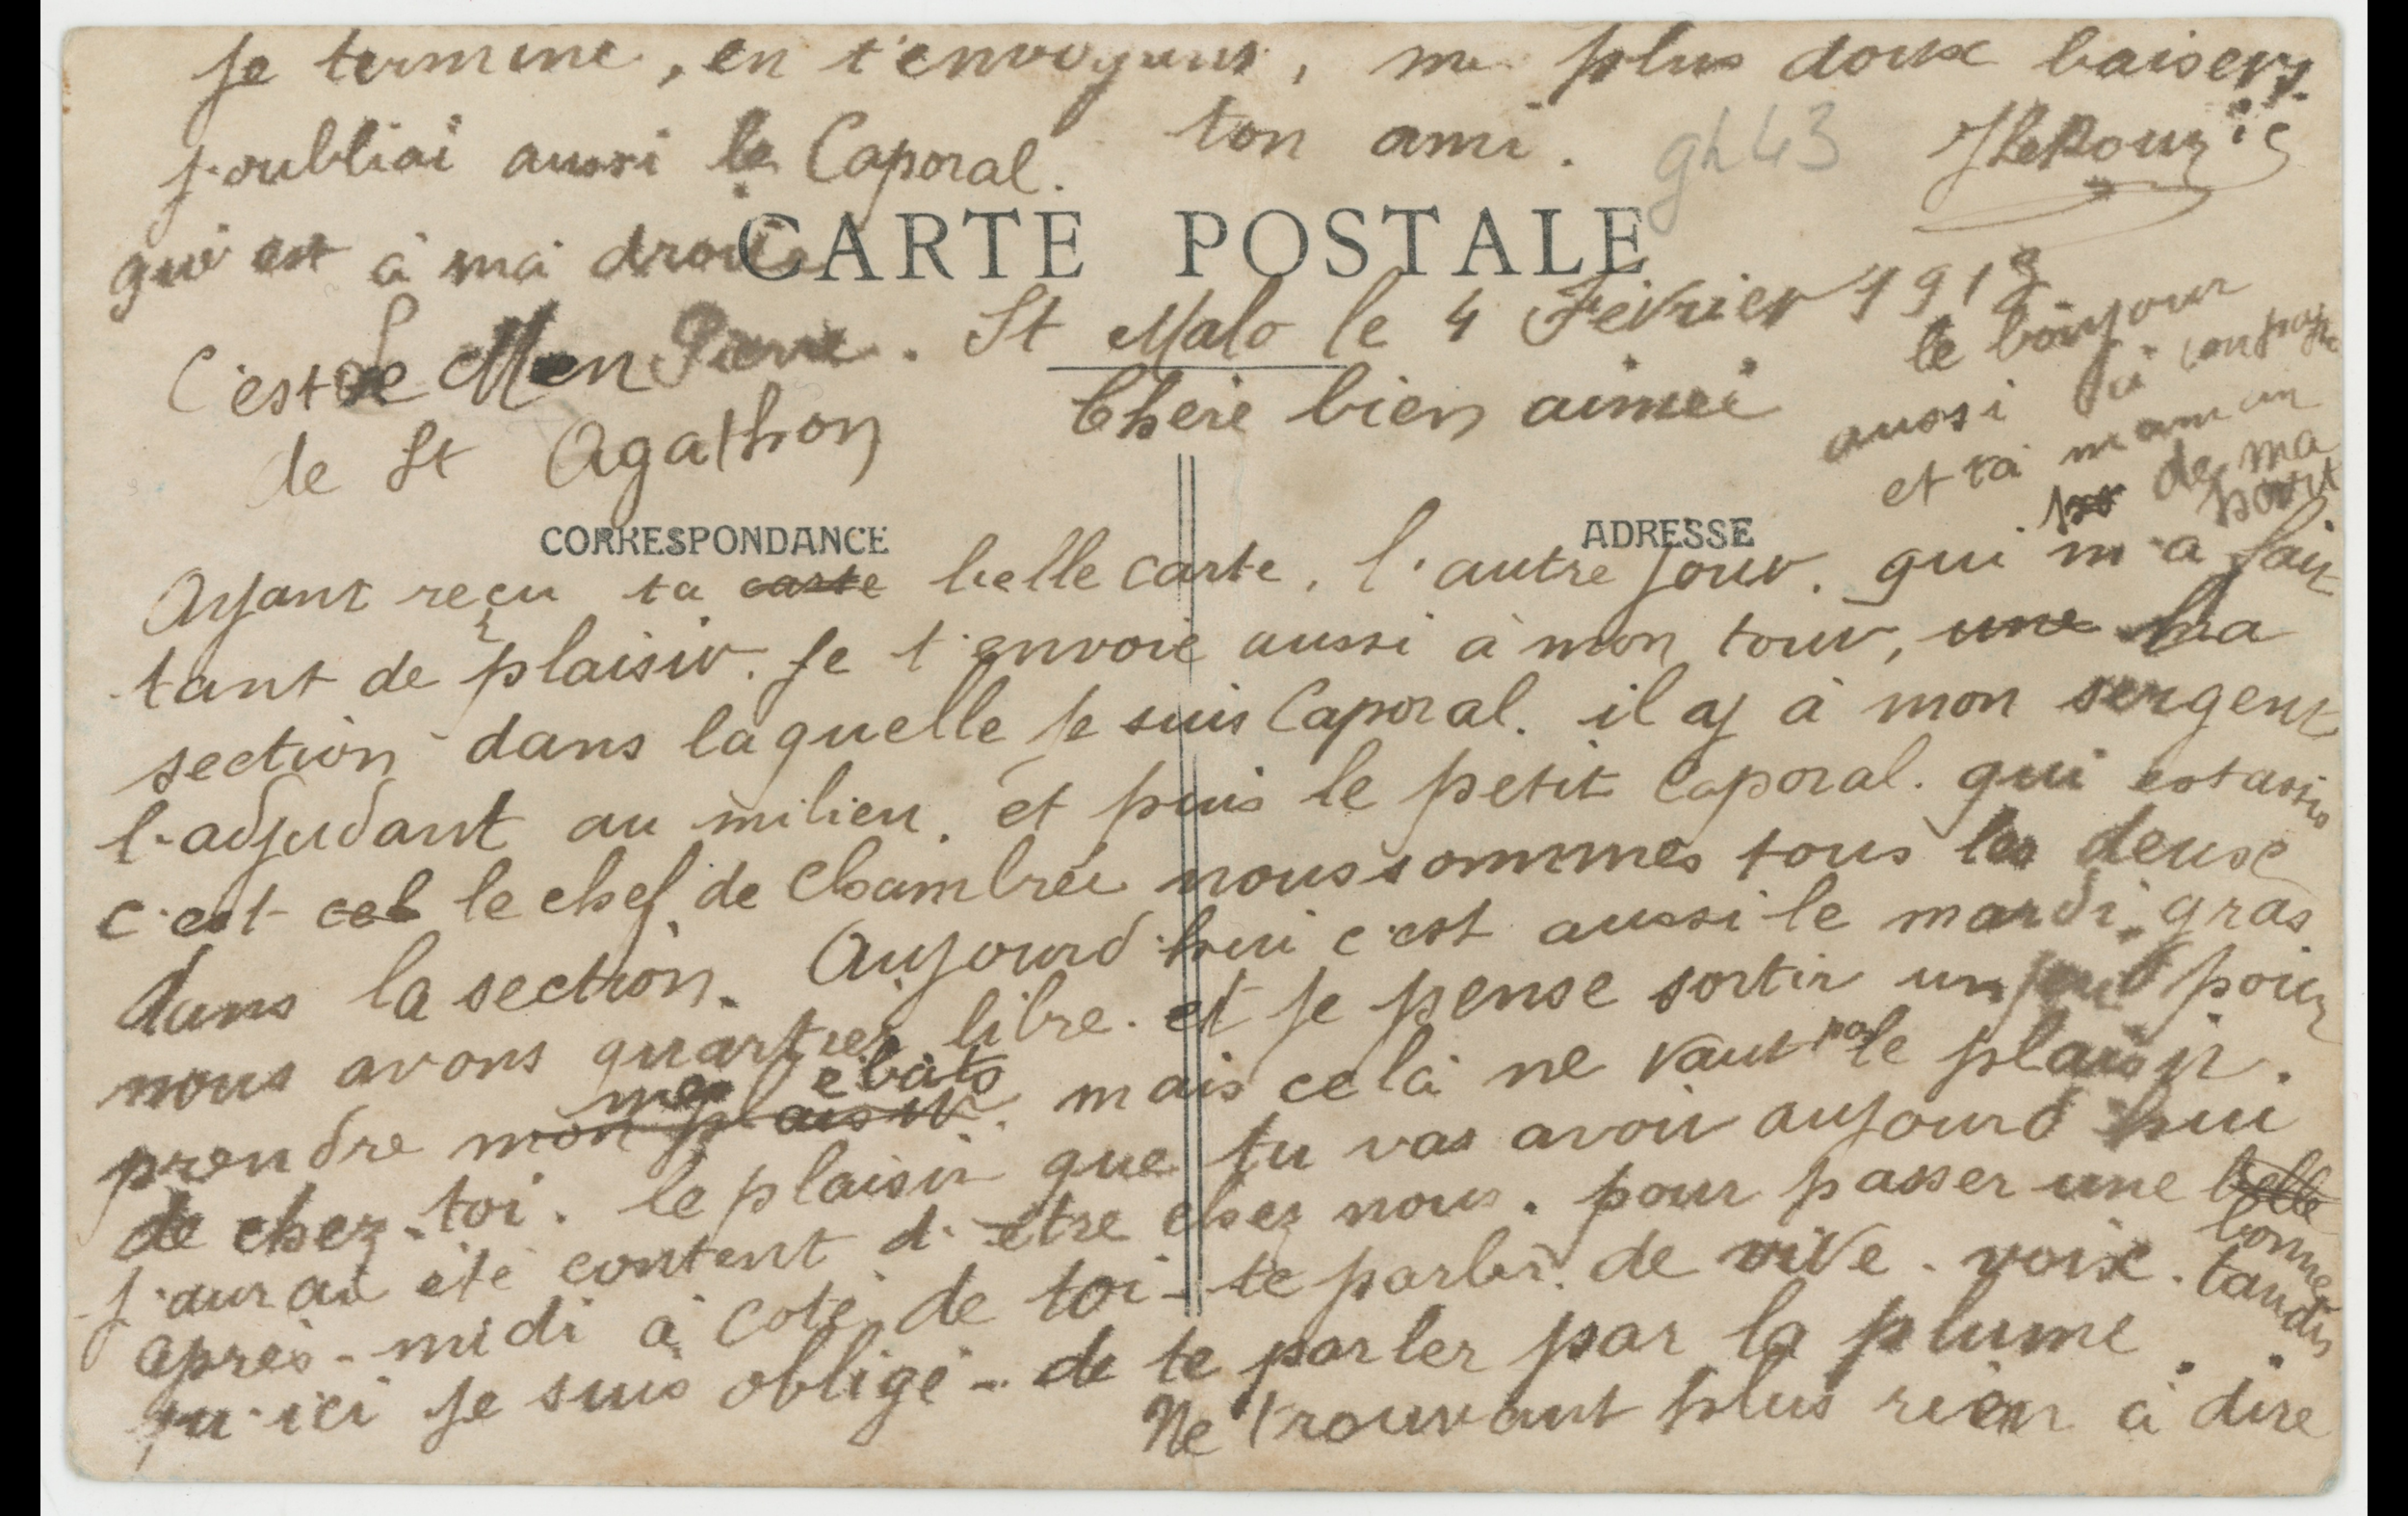 Je termine, en t'envoyant, me plus doux baisers.
j'oubliai aussi le Caporal. ton ami. gh 43
qui est à ma droite
CARTE POSTALE
C'est Le Men Pierre. St Malo le 4 Février 1913
de St Agathon
Chère bien aimée
le bonjour
aussi à ton papa
et ta maman
de ma
part
CORRESPONDANCE
ADRESSE
Ayant reçu ta carte belle carte, l'autre jour. qui m'a fait
tant de plaisir. Je t'envoie aussi à mon tour, une ma
section dans laquelle je suis Caporal. il ay à mon sergent
l'adjudant au milieu. et puis le petit Caporal. qui est assis
c'est cel le chef de chambrée nous sommes tous les deux
dans la section. Aujourd'hui c'est aussi le mardi gras
nous avons quartier libre. et je pense sortir un peu pour
prendre mon plaisir mes ébats. mais celà ne vaut pas le plaisir.
de chez-toi. le plaisir que tu vas avoir aujourd'hui
j'aurai été content d'être chez nous. pour passer une belle bonne
après-midi à coté de toi - te parler de vive-voix. tandis
qu'ici je suis obligé - de te parler par la plume.
Ne trouvant plus rien à dire